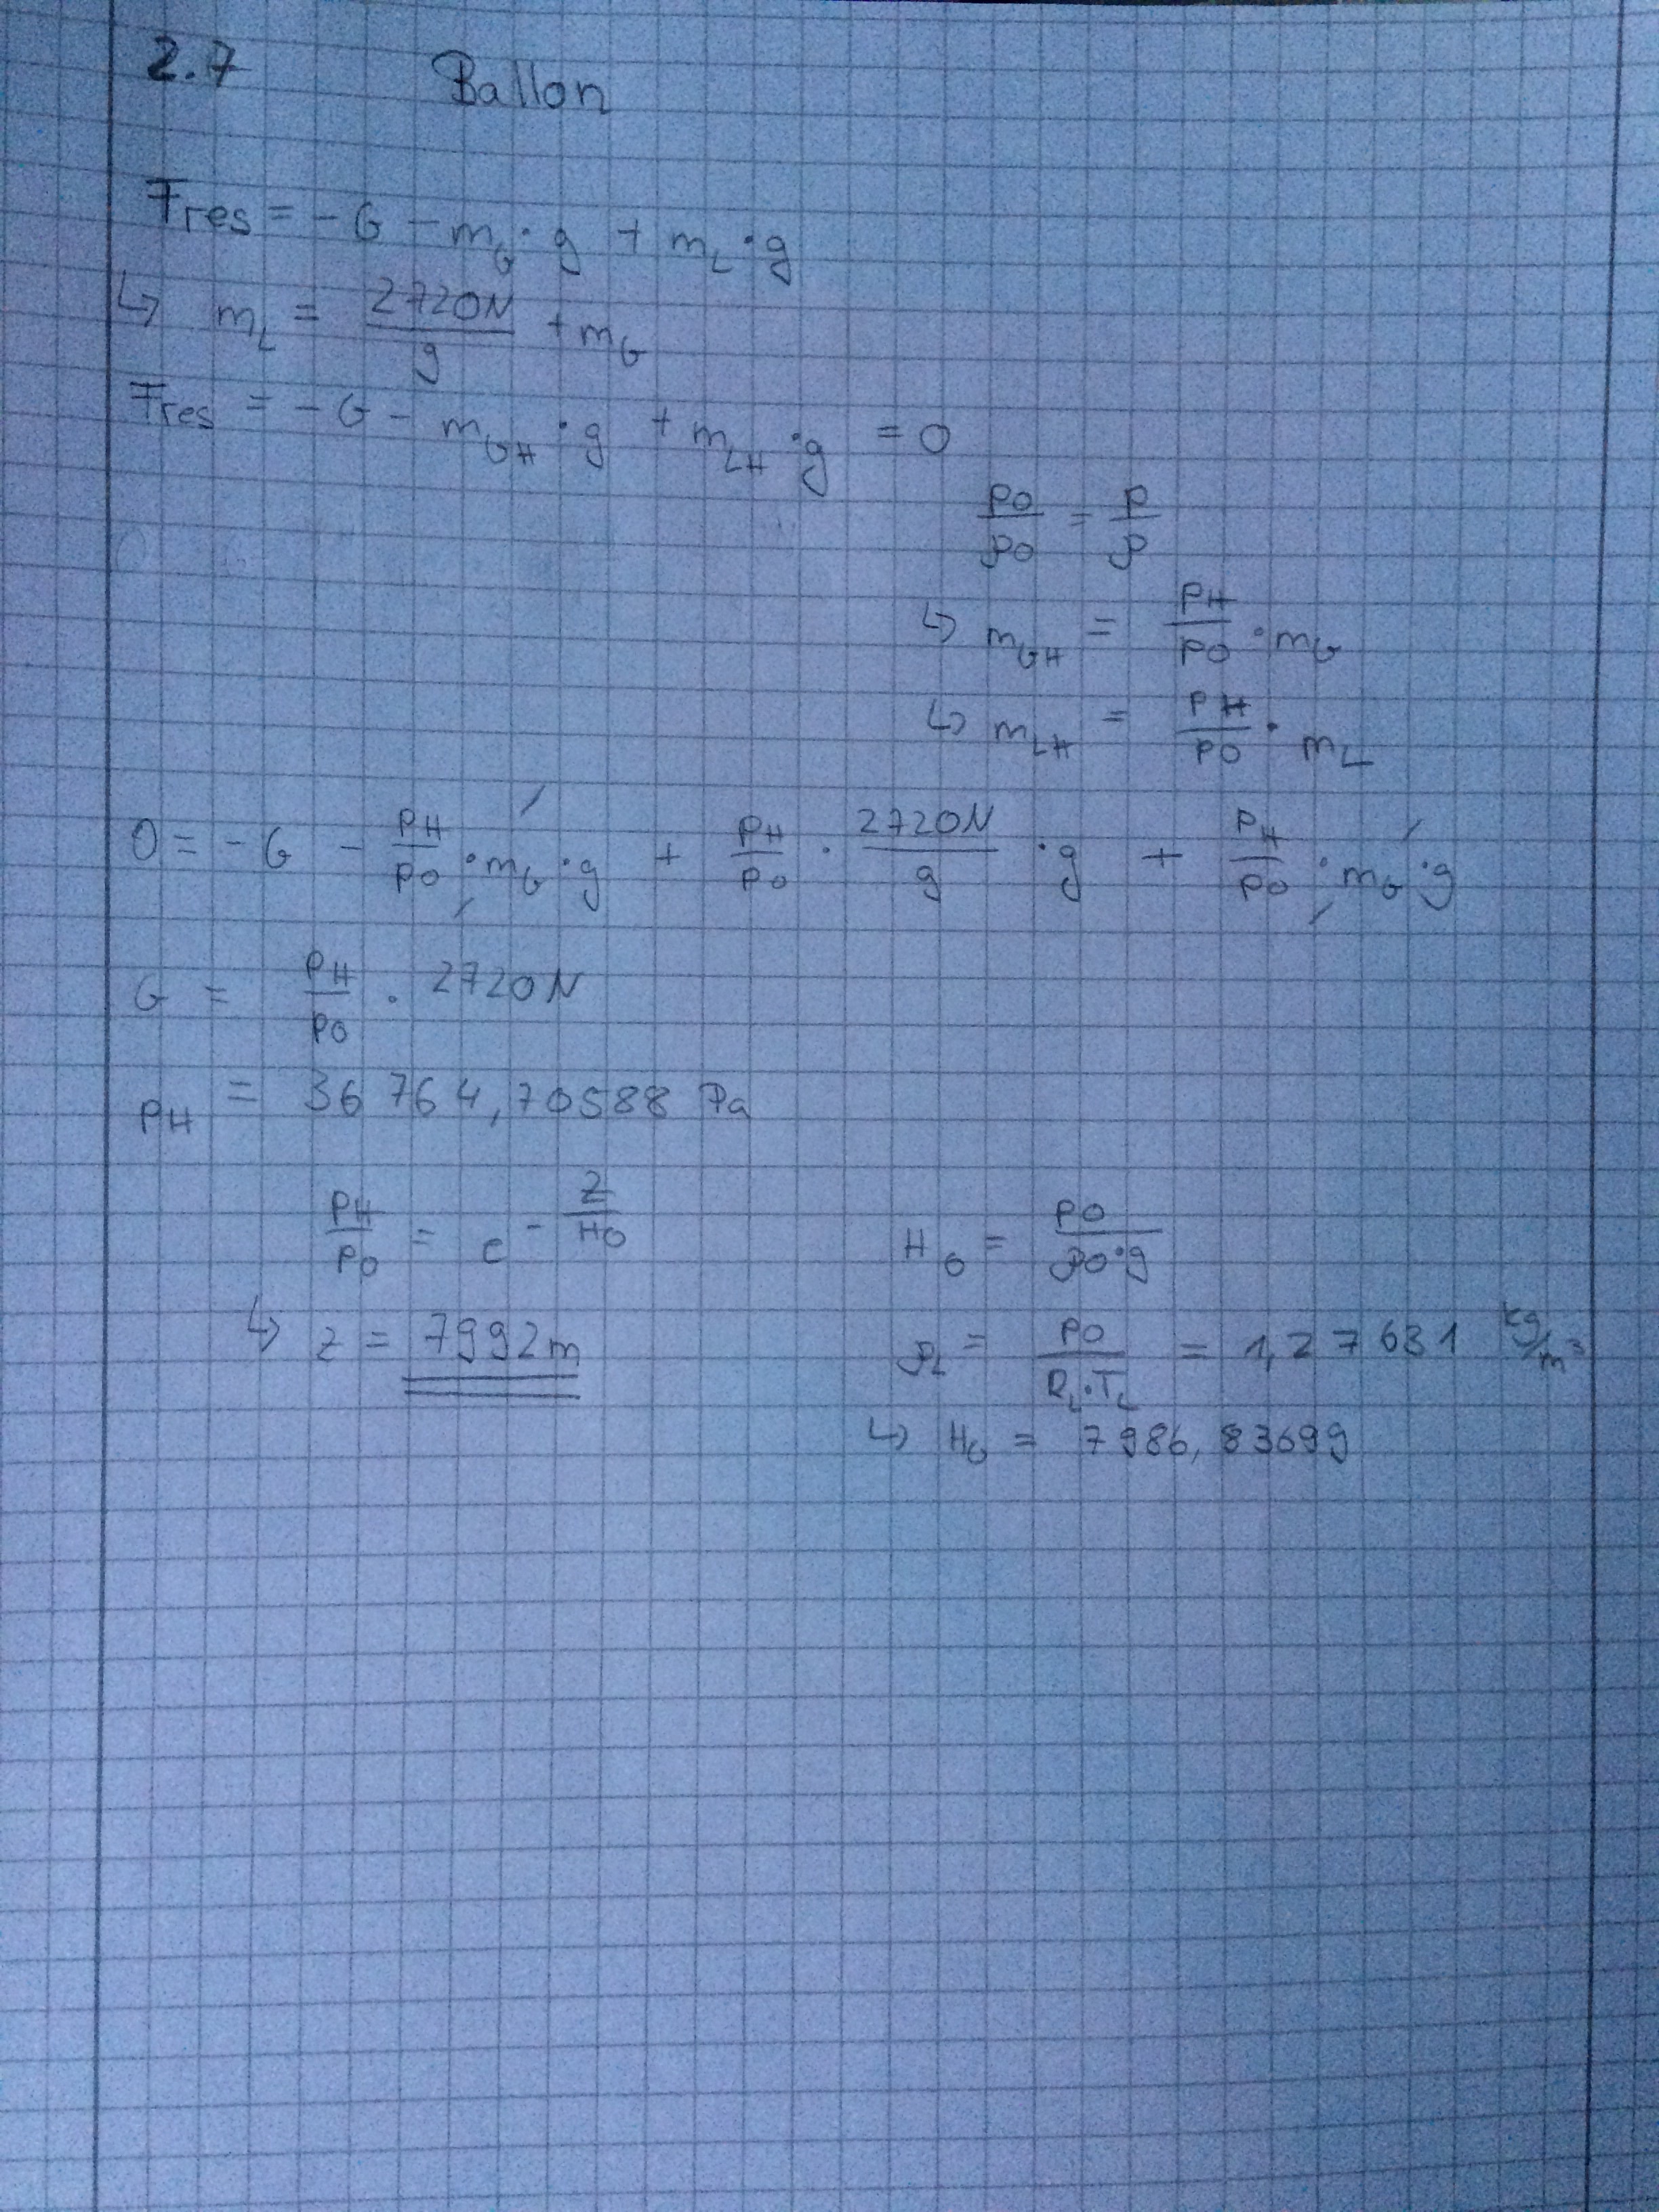 2.7 Ballon
Fres = -G - m_G · g + m_L · g
↳ m_L = 2720N/g + m_G
Fres = -G - m_GH · g + m_LH · g = 0
p0/ρ0 = p/ρ
↳ m_GH = pH/p0 · m_G
↳ m_LH = pH/p0 · m_L
0 = -G - pH/p0 · m_G · g + pH/p0 · 2720N/g · g + pH/p0 · m_G · g
G = pH/p0 · 2720N
pH = 36764,70588 Pa
pH/p0 = e^(-z/H0) H0 = p0/(ρ0·g)
↳ z = 7992m ρL = p0/(R_L·T_L) = 1,27631 kg/m³
↳ H0 = 7986,83699